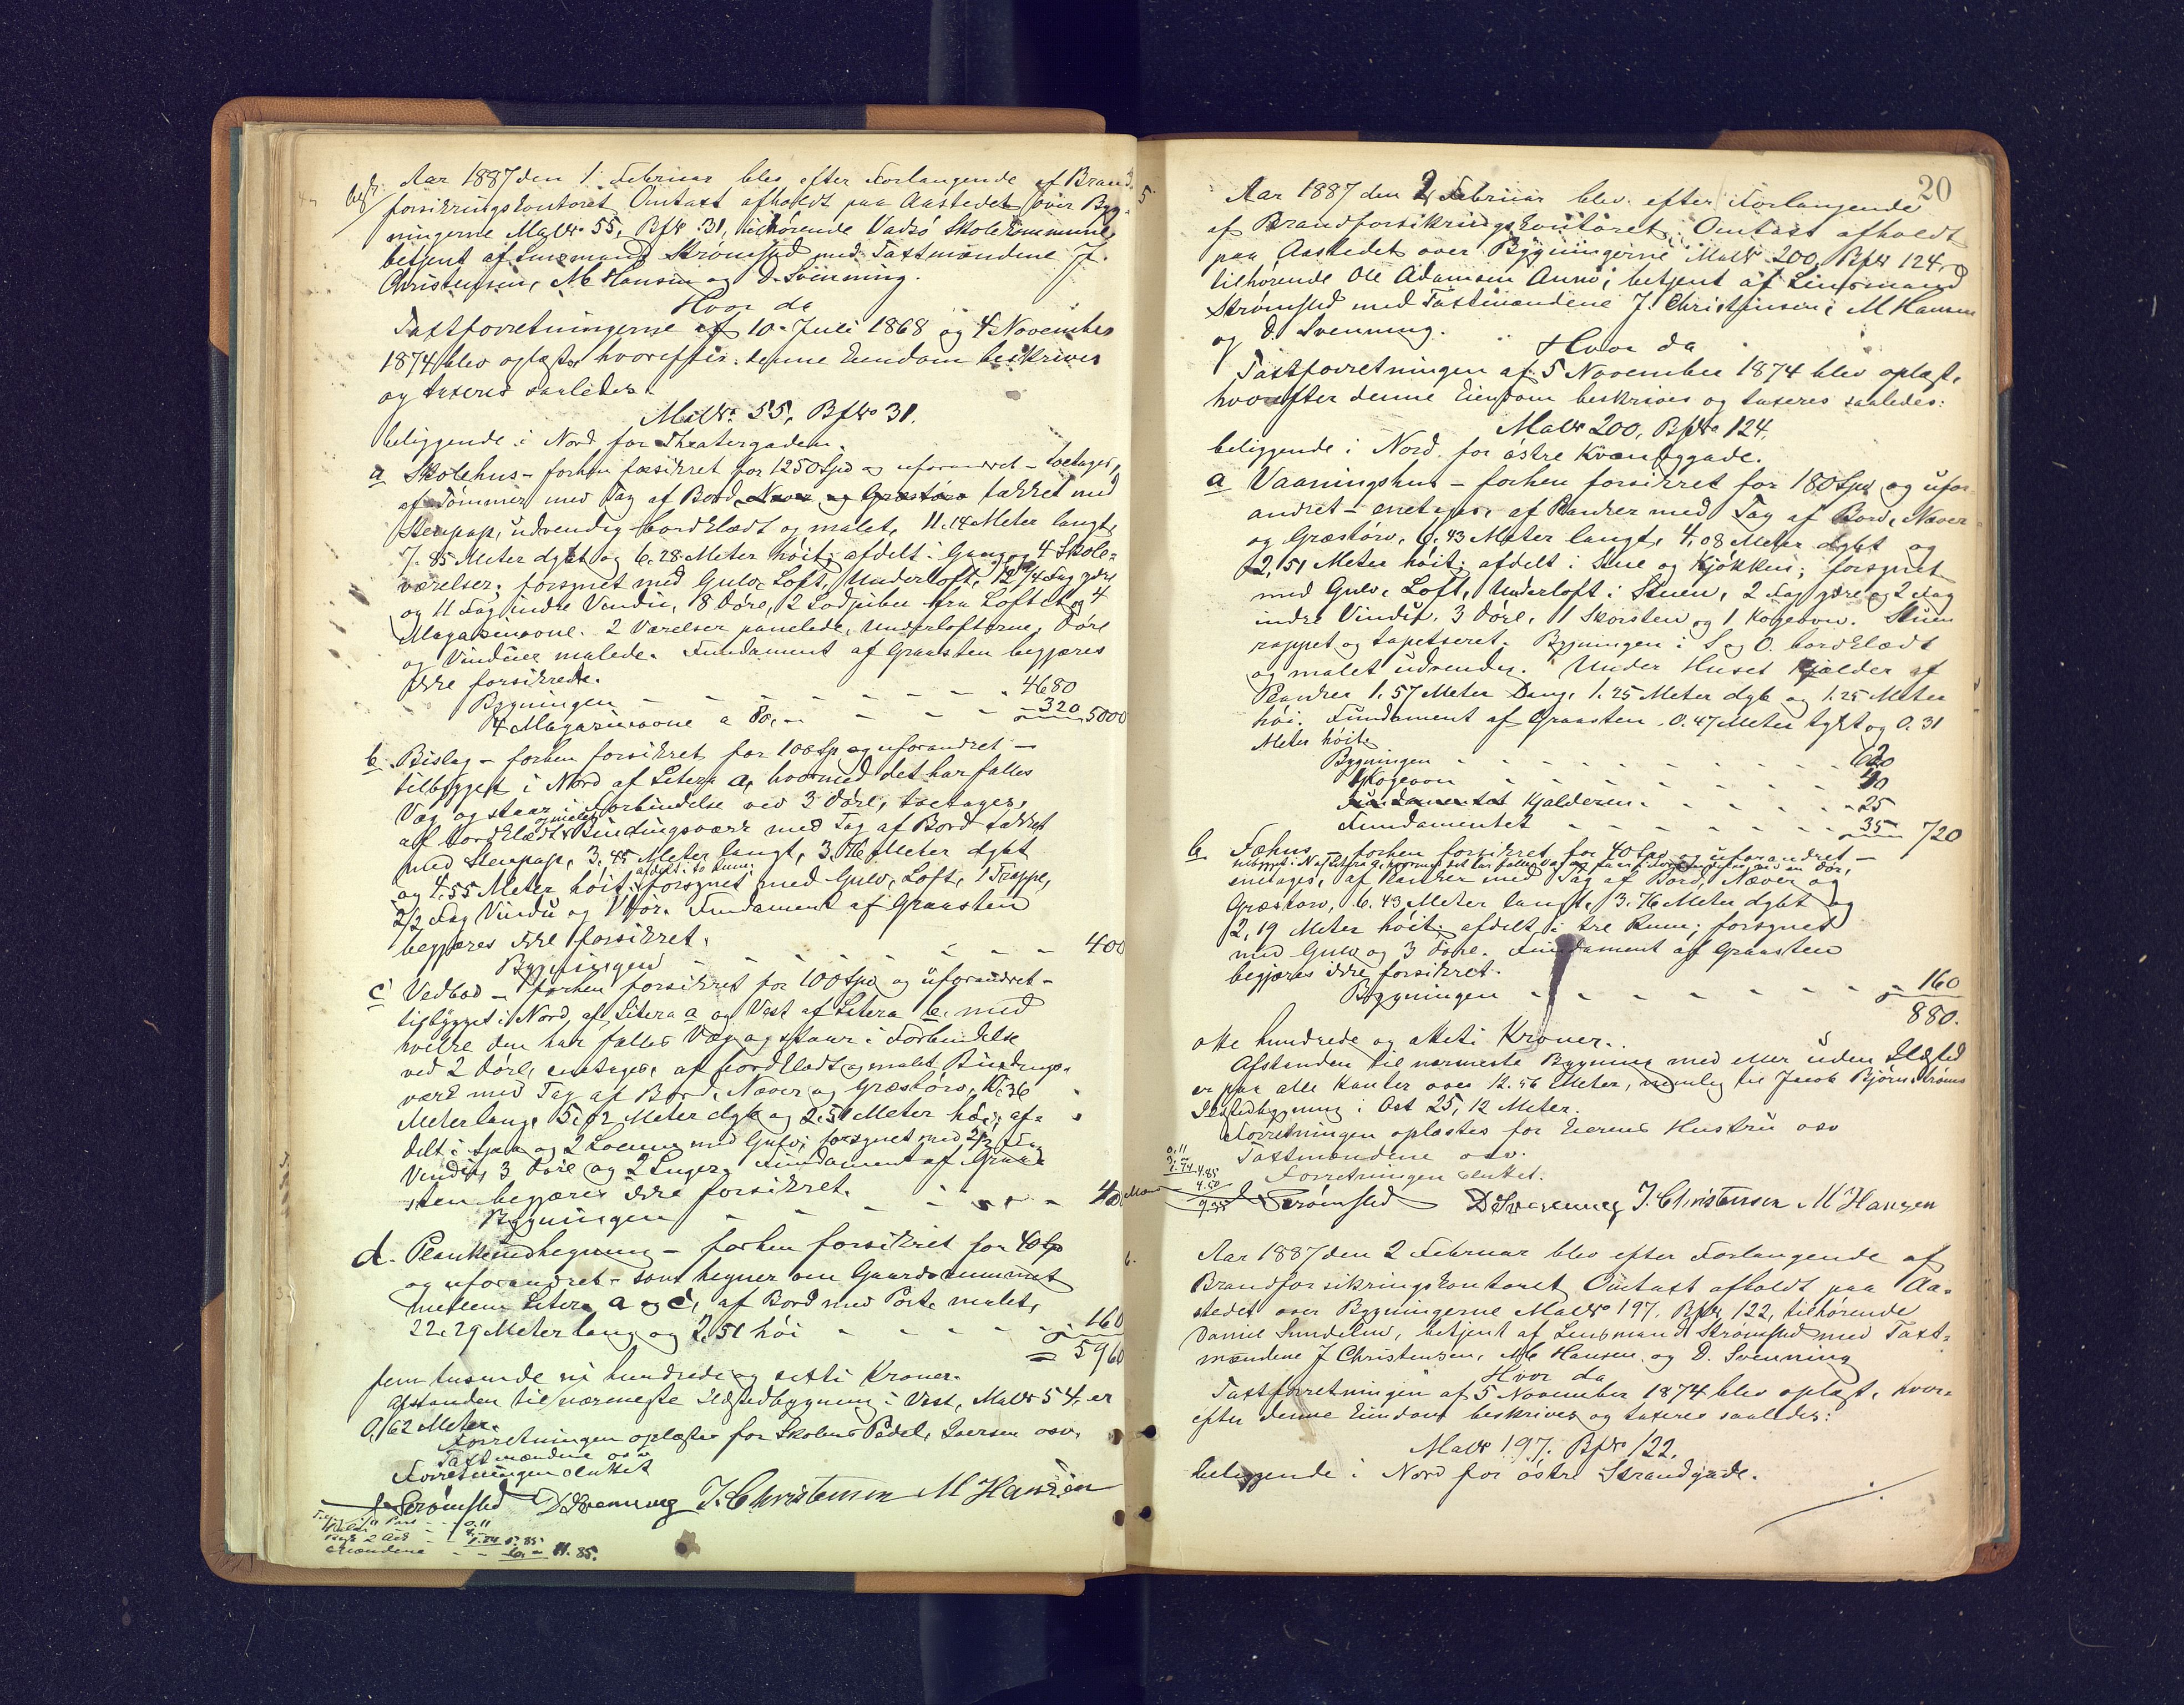 Aar 1887 den 1. Februar blev efter Forlangende af Brand-
forsikringskontoret Omtaxt afholdt paa Aastedet over Byg-
ningerne Matr. 55, Bf. 31, tilhørende Vadsø Skolekommune,
betjent af Lensmand Strømsted med Taxtmændene J.
Christensen, M Hansen og D. Svenning.
Hvor da
Taxtforretningerne af 10. Juli 1868 og 4 November
1874 blev oplæste, hvorefter denne Eiendom beskrives
og taxeres saaledes.
MatN. 55, BfNo 31.
beliggende i Nord for Theatergaden.
a Skolehus - forhen forsikret for 1250 Spd og uforandret - toetages,
af Tømmer med Tag af Bord, Næver og Græstørv takket med
Stenpap, udvendig bordklædt og malet, 11.14 Meter langt,
7.85 Meter dybt og 6.28 Meter høit; afdelt i Gang og 4 Skole-
værelser; forsynet med Gulv, Loft, Underloft, 12 1/4 Fag ydre
og 11 Fag indre Vinduer, 8 Døre, 2 Lodpiber fra Loftet og 4
Magasinovne. 2 Værelser panelede, Underlofterne, Døre
og Vinduer malede. Fundament af Graasten begjæres
ikke forsikrede.
Bygningen - - - 4680
4 Magasinovne a 80,- - - 320 5000
b Bislag - forhen forsikret for 100 Sp og uforandret -
tilbygget i Nord af Litera a, hvormed det har fælles
Væg og staar i Forbindelse ved 3 Døre, toetages,
af bordklædt og malet Bindingsværk med Tag af Bord takket
med Stenpap, 3.45 Meter langt, 3.76 Meter dybt
og 4.55 Meter høit; afdelt i to Rum; forsynet med Gulv, Loft, 1 Trappe,
2/2 Fag Vindu og 1 Dør. Fundament af Graasten
begjæres ikke forsikret.
Bygningen - - - 400
c Vedbod - forhen forsikret for 100 Spd og uforandret -
tilbygget i Nord af Litera a og Vest af Litera b, med
hvilke den har fælles Væg og staar i Forbindelse
ved 2 Døre, enetages, af bordklædt og malet Bindings-
værk med Tag af Bord, Næver og Græstørv, 10.36
Meter lang, 5.02 Meter dyb og 2.51 Meter høi; af-
delt i og 2 med Gulv; forsynet med 2/2 Fag
Vindu, 3 Døre og 2 Luger. Fundament af Graa-
sten begjæres ikke forsikret.
Bygningen - - - 400
d. Plankeindhegning - forhen forsikret for 40 Sp
og uforandret - som hegner om Gaardsrummet
mellem Litera a og c, af Bord med Port, malet,
22.29 Meter lang og 2.51 høi - - - 160
5960
fem tusinde ni hundrede og sexti Kroner.
Afstanden til nærmeste Ildstedbygning i Vest, MatN 54, er
0,62 Meter.
Forretningen oplæstes for Skolens Pedel, Iversen osv.
Taxtmændene osv
Forretningen sluttet
Strømsted D Svenning J. Christensen M Hansen
0.11
5.85
Mændene - - 11.85.
20
5 Aar 1887 den 2 Februar blev efter Forlangende
af Brandforsikringskontoret Omtaxt afholdt
paa Aastedet over Bygningerne MatN 200, BfN 124,
tilhørende Ole Adamsen Annø; betjent af Lensmand
Strømsted med Taxtmændene J. Christensen, M Hansen
og D. Svenning.
Hvor da
Taxtforretningen af 5 November 1874 blev oplæst,
hvorefter denne Eiendom beskrives og taxeres saaledes:
MatN 200, BfN 124.
beliggende i Nord for østre Kvænsgade.
a Vaaningshus - forhen forsikret for 180 Spd og ufor-
andret - enetages, af Planker med Tag af Bord, Næver
og Græstørv, 6.43 Meter langt, 4,08 Meter dybt og
2,51 Meter høit; afdelt i Stue og Kjøkken; forsynet
med Gulv, Loft, Underloft i Stuen, 2 Fag ydre og 2 Fag
indre Vindu, 3 Døre, 1 Skorsten og 1 Kogeovn. Stuen
rappet og tapetseret. Bygningen i S og O. bordklædt
og malet udvendig. Under Huset Kjælder af
Planker 1.57 Meter lang, 1.25 Meter dyb og 1.25 Meter
høi. Fundament af Graasten 0.47 Meter tykt og 0.31
Meter høit.
Bygningen - - - 620
Kogeovn - - - 40
Fundamentet Kjælderen - - - 25
Fundamentet - - - 35 720
b Fæhus - forhen forsikret for 40 Spd og uforandret -
tilbygget i N af Litera a, hvormed det har fælles Væg og staar i Forbindelse ved en Dør,
enetages, af Planker med Tag af Bord, Næver og
Græstørv, 6.43 Meter langt, 3.76 Meter dybt og
2,19 Meter høit; afdelt i tre Rum; forsynet
med Gulv og 3 Døre. Fundament af Graasten
begjæres ikke forsikret.
Bygningen - - - 160
880.
otte hundrede og otteti Kroner.
Afstanden til nærmeste Bygning med eller uden Ildsted
er paa alle Kanter over 12.56 Meter, nemlig til Jacob Bjørnstrøms
Ildstedbygning i Øst 25,12 Meter.
Forretningen oplæstes for Eierens Hustru osv
Taxtmændene osv.
Forretningen sluttet.
0.11
1.74 4.85
4.50
Strømsted D Svenning J. Christensen M Hansen
6. Aar 1887 den 2 Februar blev efter Forlangende af
Brandforsikringskontoret Omtaxt afholdt paa Aa-
stedet over Bygningerne MatNo 197, BfN 122, tilhørende
Daniel Sundelin, betjent af Lensmand Strømsted med Taxt-
mændene J Christensen, M Hansen og D. Svenning
Hvor da
Taxtforretningen af 5 November 1874 blev oplæst, hvor-
efter denne Eiendom beskrives og taxeres saaledes:
MatN 197. BfN 122.
beliggende i Nord for østre Strandgade.